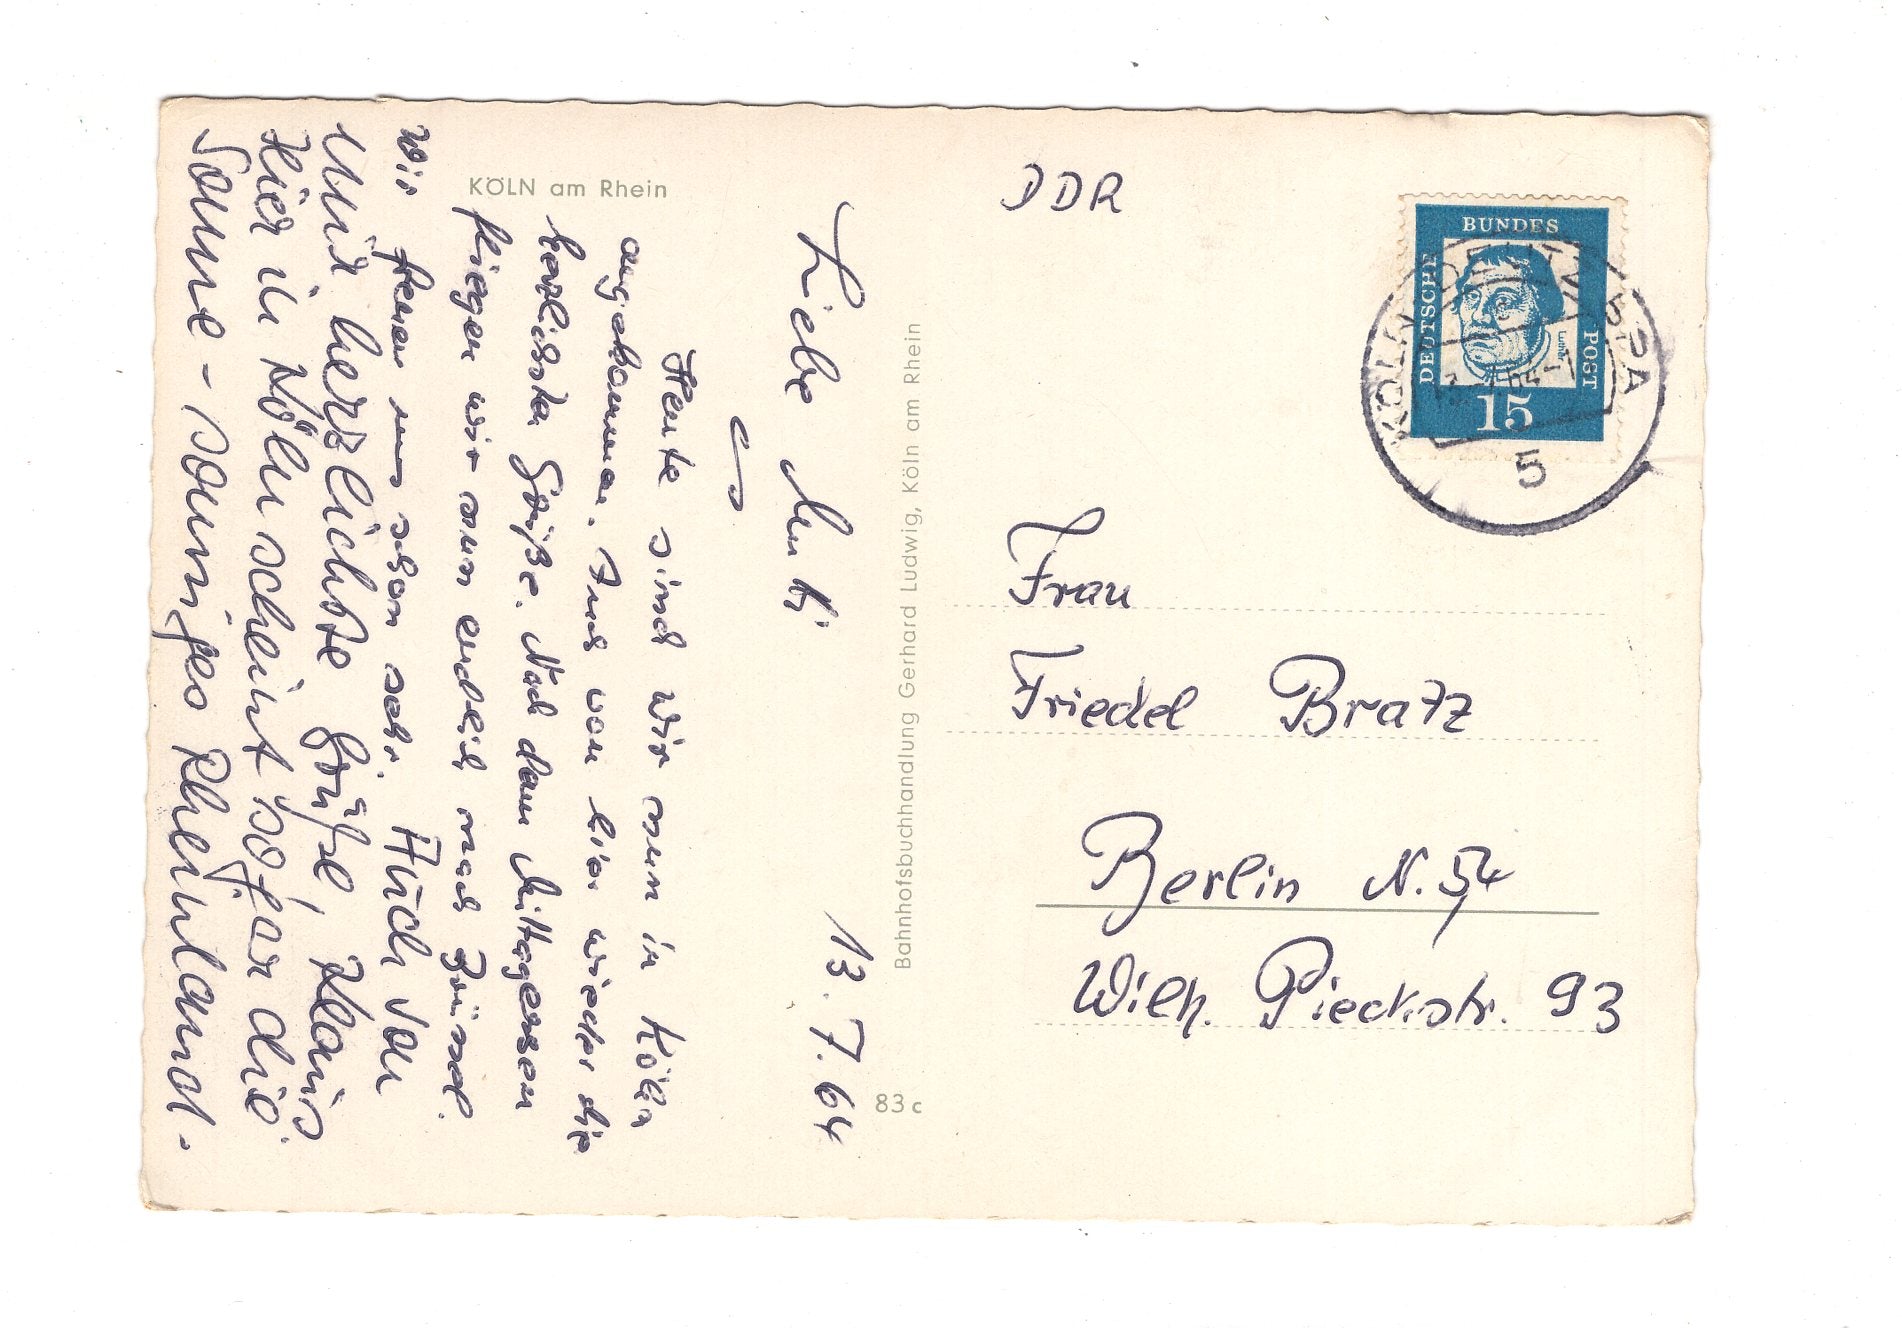 KÖLN am Rhein
13. 7. 64
Liebe Mutti
Heute sind wir nun in Köln
angekommen. Und von hier wieder die
herzlichsten Grüße. Nach dem Mittagessen
fliegen wir nun endlich nach Brüssel.
Wir freuen uns schon sehr. Auch von
mir herzlichste Grüße, Klaus
Hier in Köln scheint sogar die
Sonne - sonniges Rheinland.
Bahnhofsbuchhandlung Gerhard Ludwig, Köln am Rhein
83 c
DDR
DEUTSCHE
BUNDES
POST
Luther
15
KÖLN-DEUTZ
5
Frau
Friedel Bratz
Berlin N. 54
Wilh. Pieckstr. 93